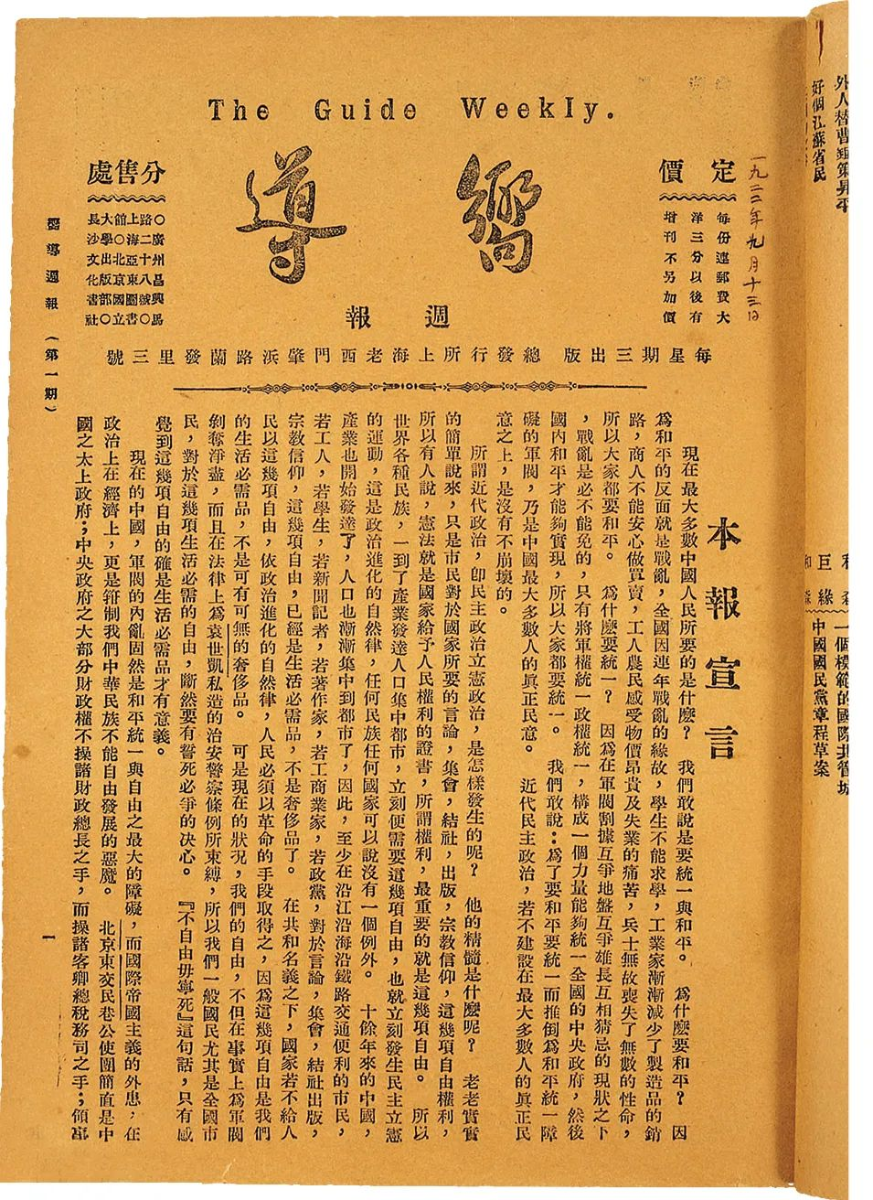 The Guide Weekly.
嚮導
週報
定價
每份連郵費大
洋三分以後有
增刊不另加價
一九二二年九月十三日
分售處
○廣州昌興馬
路二十八號○
上海亞東圖書
館○北京國立
大學出版部○
長沙文化書社
每星期三出版 總發行所上海老西門肇浜路蘭發里三號
本報宣言
現在最大多數中國人民所要的是什麼？ 我們敢說是要統一與和平。 爲什麼要和平？ 因
爲和平的反面就是戰亂，全國因連年戰亂的緣故，學生不能求學，工業家漸漸減少了製造品的銷
路，商人不能安心做買賣，工人農民感受物價昂貴及失業的痛苦，兵士無故喪失了無數的性命，
所以大家都要和平。 爲什麼要統一？ 因爲在軍閥割據互爭地盤互爭雄長互相猜忌的現狀之下
，戰亂是必不能免的，只有將軍權統一政權統一，構成一個力量能夠統一全國的中央政府，然後
國內和平才能夠實現，所以大家都要統一。 我們敢說：爲了要和平要統一而推倒爲和平統一障
礙的軍閥，乃是中國最大多數人的眞正民意。 近代民主政治，若不建設在最大多數人的眞正民
意之上，是沒有不崩壞的。
所謂近代政治，卽民主政治立憲政治，是怎樣發生的呢？ 他的精髓是什麼呢？ 老老實實
的簡單說來，只是市民對於國家所要的言論，集會，結社，出版，宗教信仰，這幾項自由權利，
所以有人說，憲法就是國家給予人民權利的證書，所謂權利，最重要的就是這幾項自由。 所以
世界各種民族，一到了產業發達人口集中都市，立刻便需要這幾項自由，也就立刻發生民主立憲
的運動，這是政治進化的自然律，任何民族任何國家可以說沒有一個例外。 十餘年來的中國，
產業也開始發達了，人口也漸漸集中到都市了，因此，至少在沿江沿海沿鐵路交通便利的市民，
若工人，若學生，若新聞記者，若著作家，若工商業家，若政黨，對於言論，集會，結社出版，
宗教信仰，這幾項自由，已經是生活必需品，不是奢侈品了。 在共和名義之下，國家若不給人
民以這幾項自由，依政治進化的自然律，人民必須以革命的手段取得之，因爲這幾項自由是我們
的生活必需品，不是可有可無的奢侈品。 可是現在的狀況，我們的自由，不但在事實上爲軍閥
剝奪淨盡，而且在法律上爲袁世凱私造的治安警察條例所束縛，所以我們一般國民尤其是全國市
民，對於這幾項生活必需的自由，斷然要有誓死必爭的決心。 『不自由毋寧死』這句話，只有感
覺到這幾項自由的確是生活必需品才有意義。
現在的中國，軍閥的內亂固然是和平統一與自由之最大的障礙，而國際帝國主義的外患，在
政治上在經濟上，更是箝制我們中華民族不能自由發展的惡魔。 北京東交民巷公使團簡直是中
國之太上政府；中央政府之大部分財政權不操諸財政總長之手，而操諸客卿總稅務司之手；領
嚮導週報（第一期）
一
外人替曹
好個江蘇省民
巨緣
一個模範的國際共管城
中國國民黨章程草案